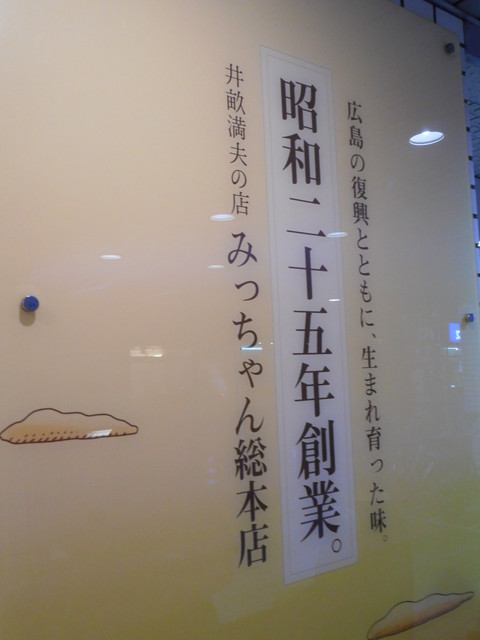 広島の復興とともに、生まれ育った味。
昭和二十五年創業。
井畝満夫の店 みっちゃん総本店